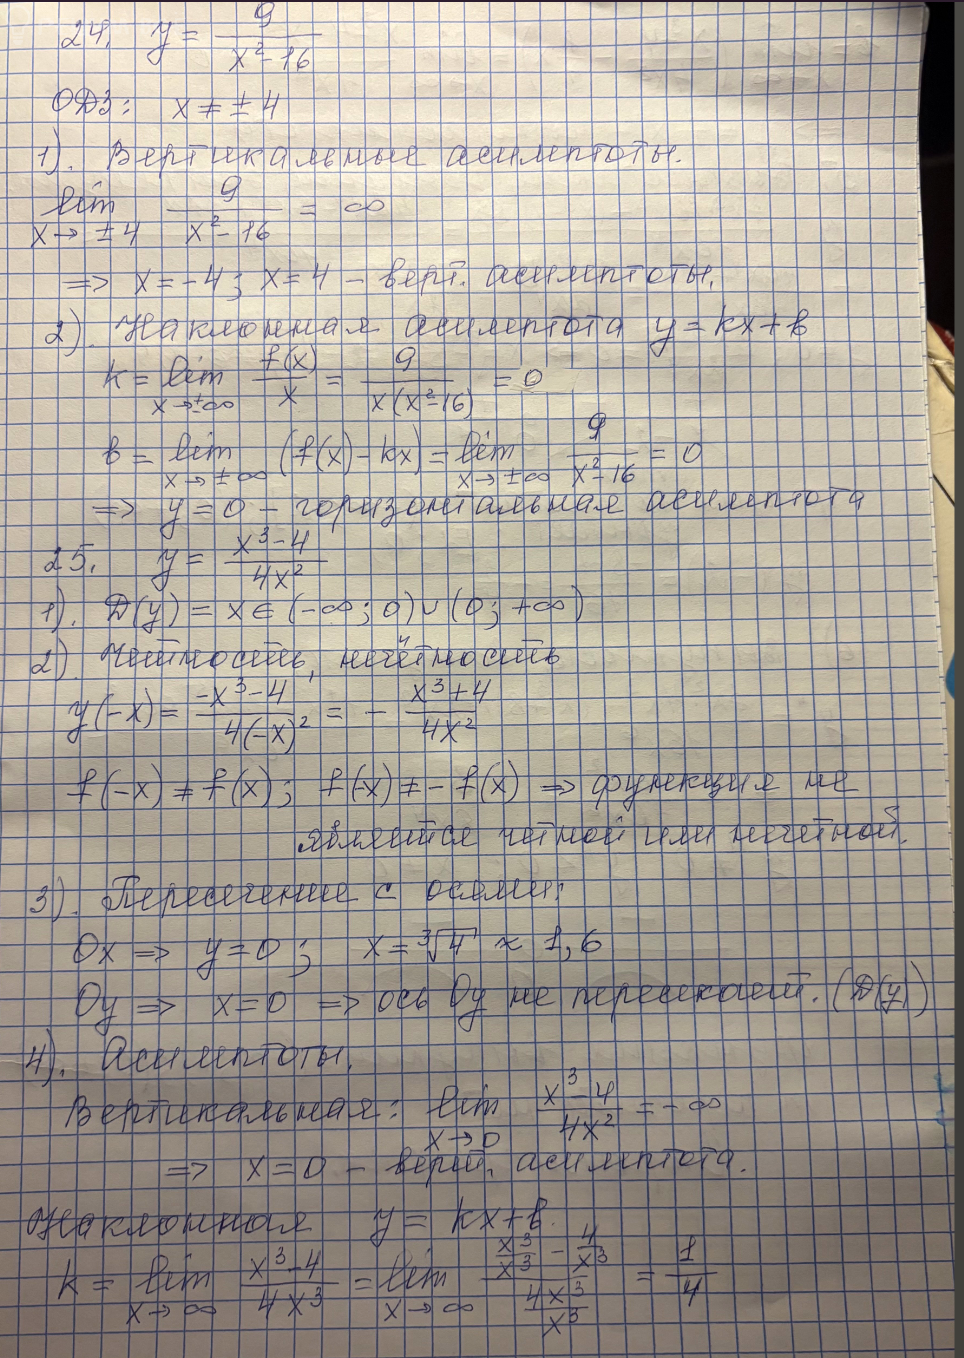 24. y = 9/(x² - 16)
ОДЗ: x ≠ ± 4
1). Вертикальные асимптоты.
lim x→ ±4 9/(x² - 16) = ∞
=> x = -4; x = 4 - верт. асимптоты.
2). Наклонная асимптота y = kx + b
k = lim x→±∞ f(x)/x = 9/(x(x²-16)) = 0
b = lim x→ ±∞ (f(x) - kx) = lim x→ ±∞ 9/(x² - 16) = 0
=> y = 0 - горизонтальная асимптота
25. y = (x³ - 4)/(4x²)
1). D(y) = x ∈ (-∞; 0) ∪ (0; +∞)
2). Четность, нечётность
y(-x) = (-x³ - 4)/(4(-x)²) = - (x³ + 4)/(4x²)
f(-x) ≠ f(x); f(-x) ≠ - f(x) => функция не
является четной или нечетной.
3). Пересечение с осями:
Ox => y = 0; x = ³√4 ≈ 1,6
Oy => x = 0 => ось Oy не пересекает. (D(y))
4). Асимптоты.
Вертикальная: lim x→0 (x³ - 4)/(4x²) = - ∞
=> x = 0 - верт. асимптота.
Наклонная y = kx + b.
k = lim x→∞ (x³ - 4)/(4x³) = lim x→∞ (x³/x³ - 4/x³)/(4x³/x³) = 1/4